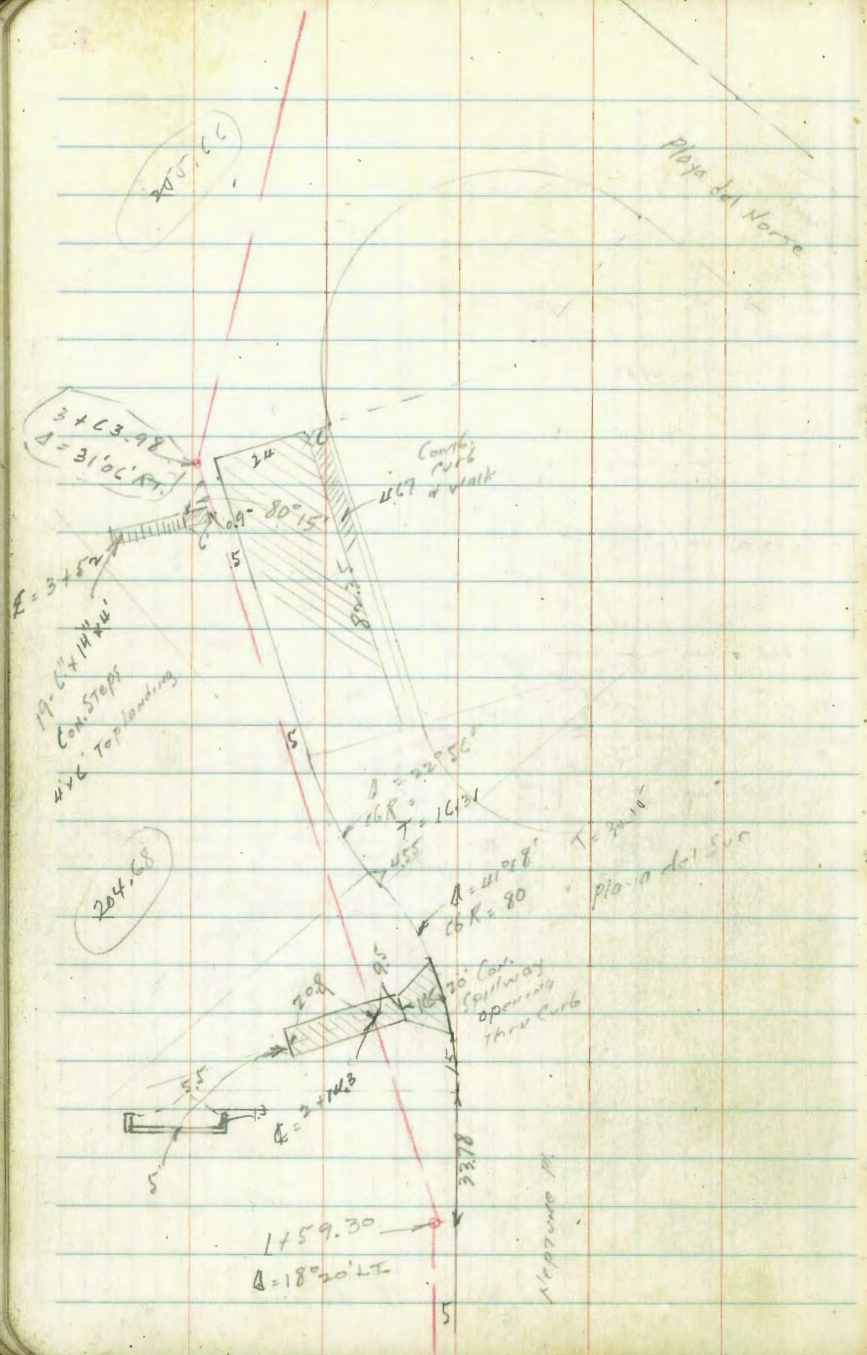 Playa del Norte
3 + 63.98
Δ = 31°06' RT.
24
Comb.
Curb
& Walk
4.67
0.9
80°15'
6
5
82.35
℄ = 3+52
19-6" x 14" x 4'
Con. Steps
4x6' Top landing
5
Δ = 22°56'
CB R =
T = 16.31
4.55
T = 30.15
Playa del Sur
204.68
Δ = 41°18'
CB R = 80
9.5
20.8
20' Con.
Spillway
opening
Thru Curb
15
5.5
℄ = 2 + 14.3
5
33.78
Neptune Pl.
1+59.30
Δ = 18°20' LT
5